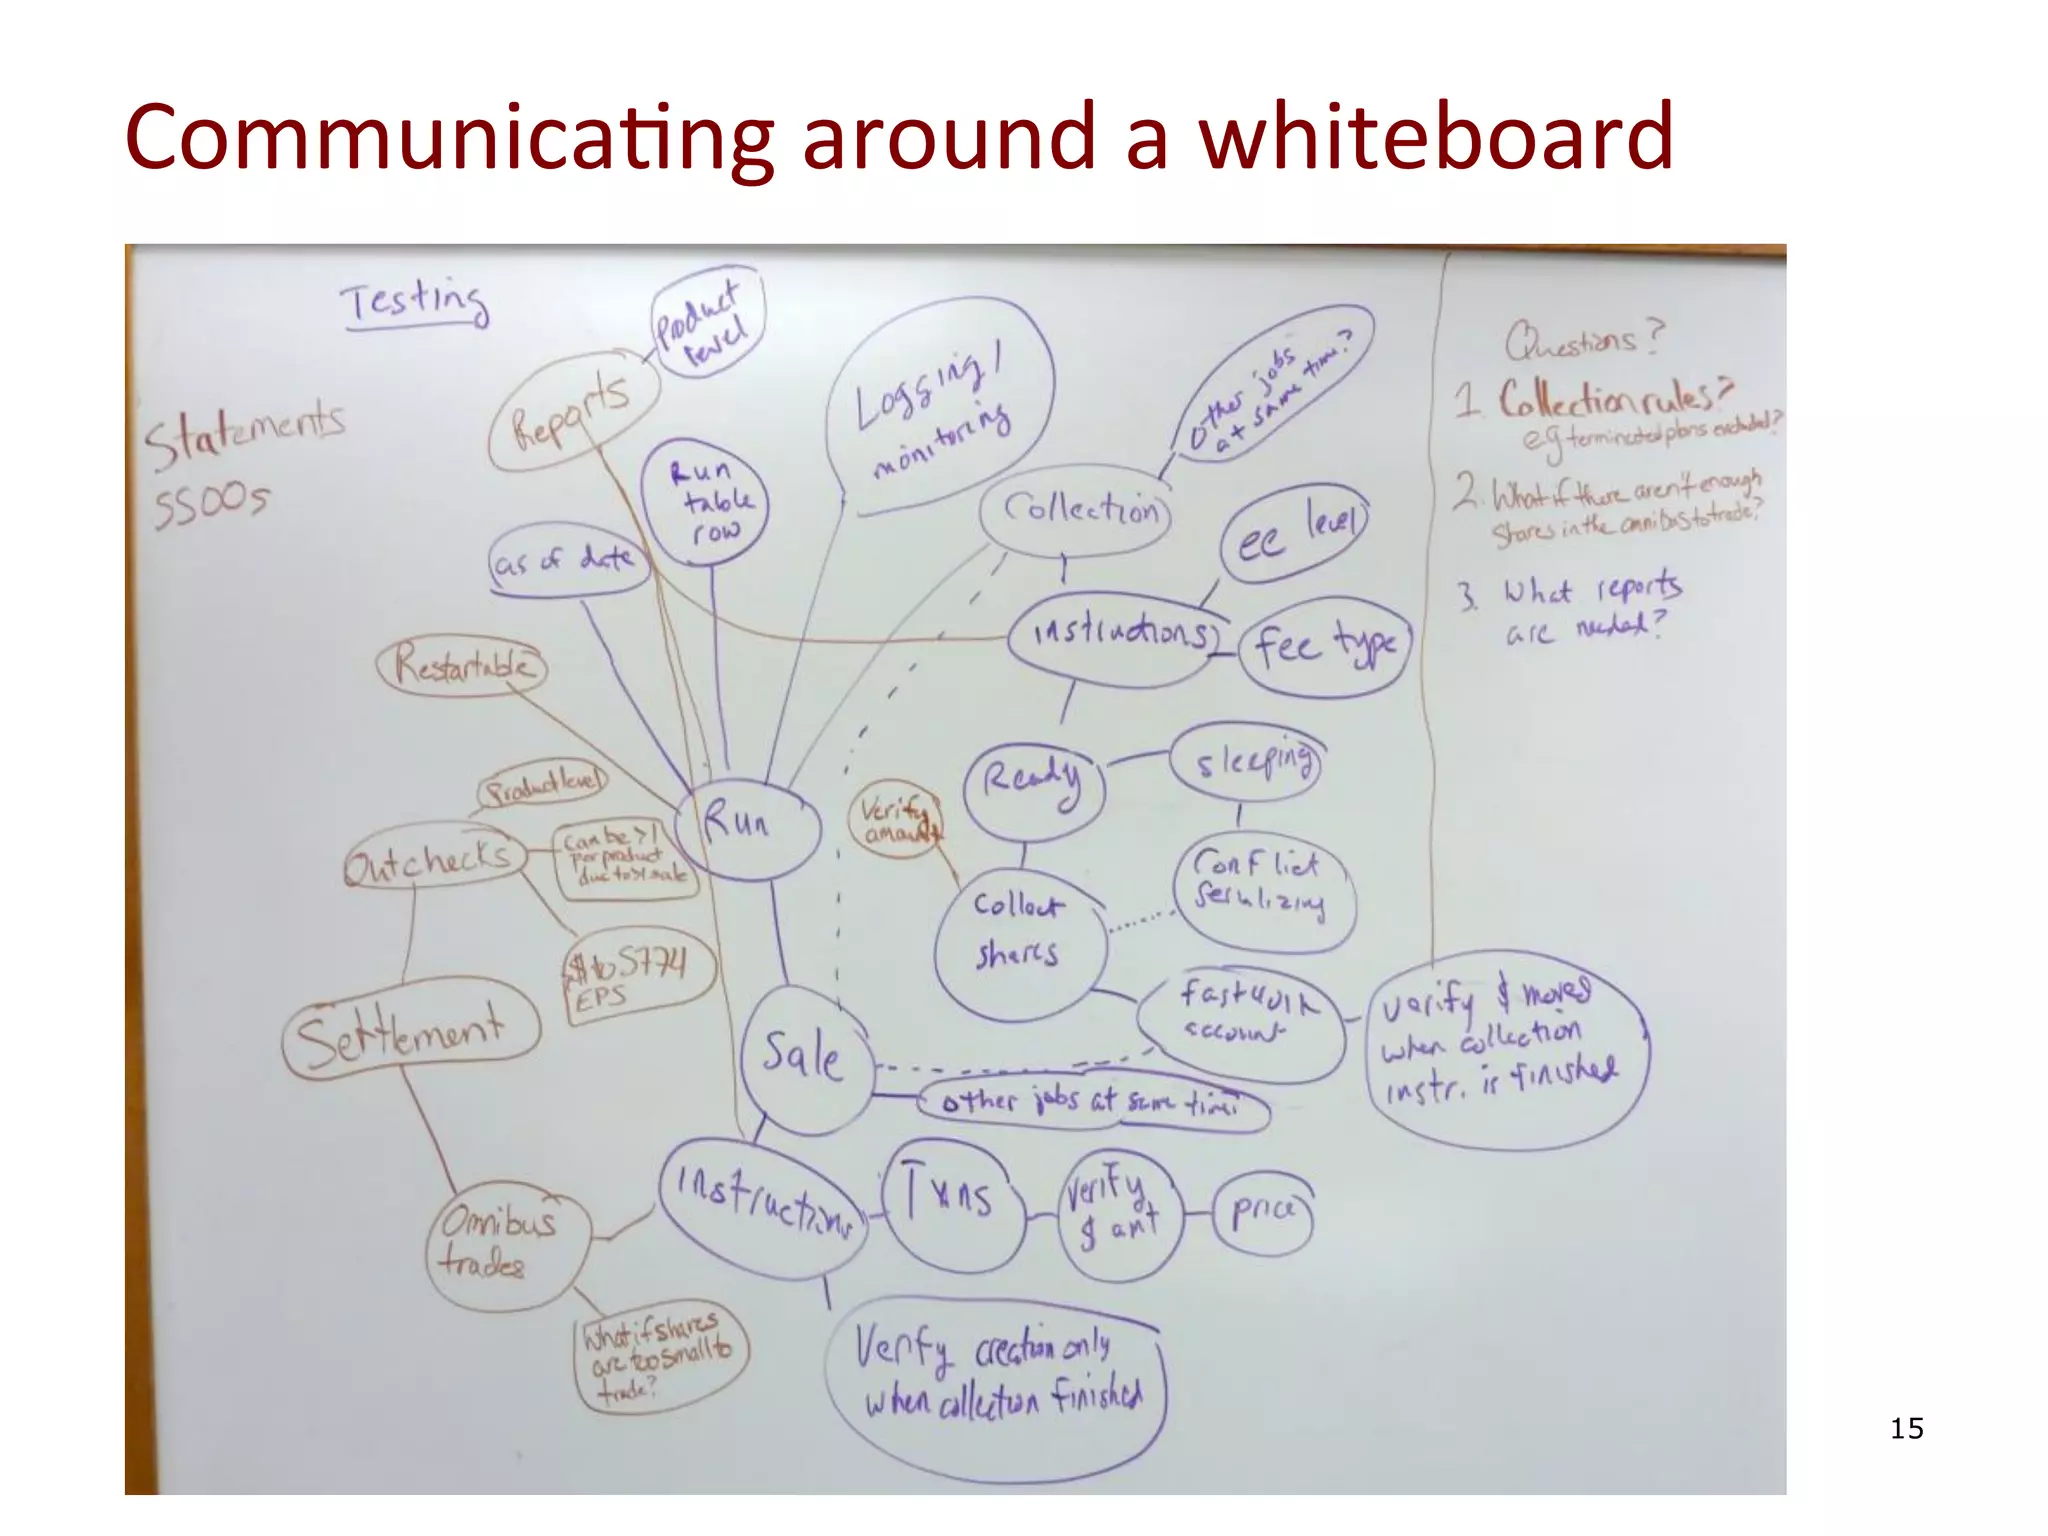 Communicating around a whiteboard
Testing
Statements
SSOOs
Reports
Product
level
Run
table
row
as of date
Restartable
Logging/
monitoring
Other jobs
at same time?
Collection
ee level
Instructions
fee type
Ready
sleeping
Conflict
serializing
Verify
amount
Collect
shares
Fastwork
account
verify $ moved
when collection
instr. is finished
Run
Product level
Outchecks
can be >1
per product
due to >1 sale
$ to 5774
EPS
Settlement
Sale
other jobs at same time
Instructions
Txns
verify
$ amt
price
Omnibus
trades
What if shares
are too small to
trade?
Verify creation only
when collection finished
Questions?
1. Collection rules?
eg terminated plans excluded?
2. What if there aren't enough
shares in the omnibus to trade?
3. What reports
are needed?
15